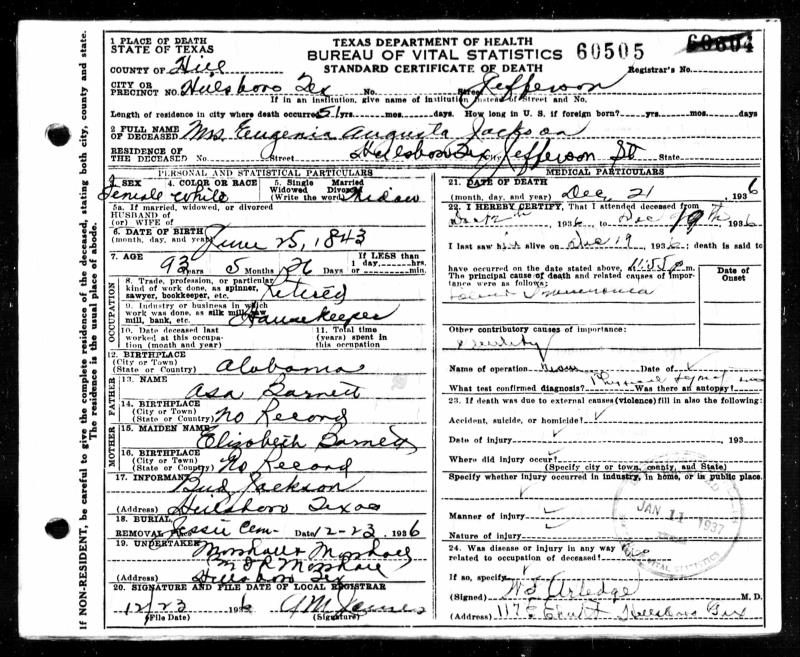 1 PLACE OF DEATH
STATE OF TEXAS
TEXAS DEPARTMENT OF HEALTH
BUREAU OF VITAL STATISTICS 60505
STANDARD CERTIFICATE OF DEATH
COUNTY OF Hill Registrar's No.
CITY OR
PRECINCT NO. Hillsboro Tex No. Street Jefferson
If in an institution, give name of institution instead of Street and No.
Length of residence in city where death occurred 51 yrs. mos. days. How long in U. S. if foreign born? yrs. mos. days.
2 FULL NAME
OF DECEASED Mrs. Eugenia Augusta Jackson
RESIDENCE OF
THE DECEASED No. Street Hillsboro Tex City Jefferson St State
PERSONAL AND STATISTICAL PARTICULARS
3. SEX Female
4. COLOR OR RACE White
5. Single Married
Widowed Divorced
(Write the word) Widow
5a. If married, widowed, or divorced
HUSBAND of
(or) WIFE of
6. DATE OF BIRTH
(month, day, and year) June 25, 1843
7. AGE 93 Years 5 Months 26 Days
If LESS than
1 day, hrs.
or min.
OCCUPATION
8. Trade, profession, or particular
kind of work done, as spinner,
sawyer, bookkeeper, etc. Retired
9. Industry or business in which
work was done, as silk mill, saw
mill, bank, etc. Housekeeper
10. Date deceased last
worked at this occupa-
tion (month and year)
11. Total time
(years) spent in
this occupation
12. BIRTHPLACE
(City or Town)
(State or Country) Alabama
FATHER
13. NAME Asa Barnett
14. BIRTHPLACE
(City or Town)
(State or Country) No Record
MOTHER
15. MAIDEN NAME Elizabeth Barnett
16. BIRTHPLACE
(City or Town)
(State or Country) No Record
17. INFORMANT Bud Jackson
(Address) Hillsboro Texas
18. BURIAL
REMOVAL Cem. Date 12-23 1936
19. UNDERTAKER Marshall & Marshall
Marshall
(Address) Hillsboro Tex
20. SIGNATURE AND FILE DATE OF LOCAL REGISTRAR
12/23 1936
(File Date) (Signature)
MEDICAL PARTICULARS
21. DATE OF DEATH
(month, day, and year) Dec, 21 1936
22. I HEREBY CERTIFY, That I attended deceased from
1936, to Dec 19th 1936
I last saw h alive on Dec 19 1936; death is said to
have occurred on the date stated above, 11:55 P m.
The principal cause of death and related causes of impor-
tance were as follows:
Date of
Onset
Lobar Pneumonia
Other contributory causes of importance:
Senility
Name of operation Date of
What test confirmed diagnosis? Physical Was there an autopsy?
23. If death was due to external causes (violence) fill in also the following:
Accident, suicide, or homicide?
Date of injury 193
Where did injury occur?
(Specify city or town, county, and State)
Specify whether injury occurred in industry, in home, or in public place.
Manner of injury
Nature of injury
JAN 11 1937
VITAL STATISTICS
24. Was disease or injury in any way
related to occupation of deceased? No
If so, specify
(Signed) Arledge M. D.
(Address) Hillsboro
If NON-RESIDENT, be careful to give the complete residence of the deceased, stating both city, county and state.
The residence is the usual place of abode.